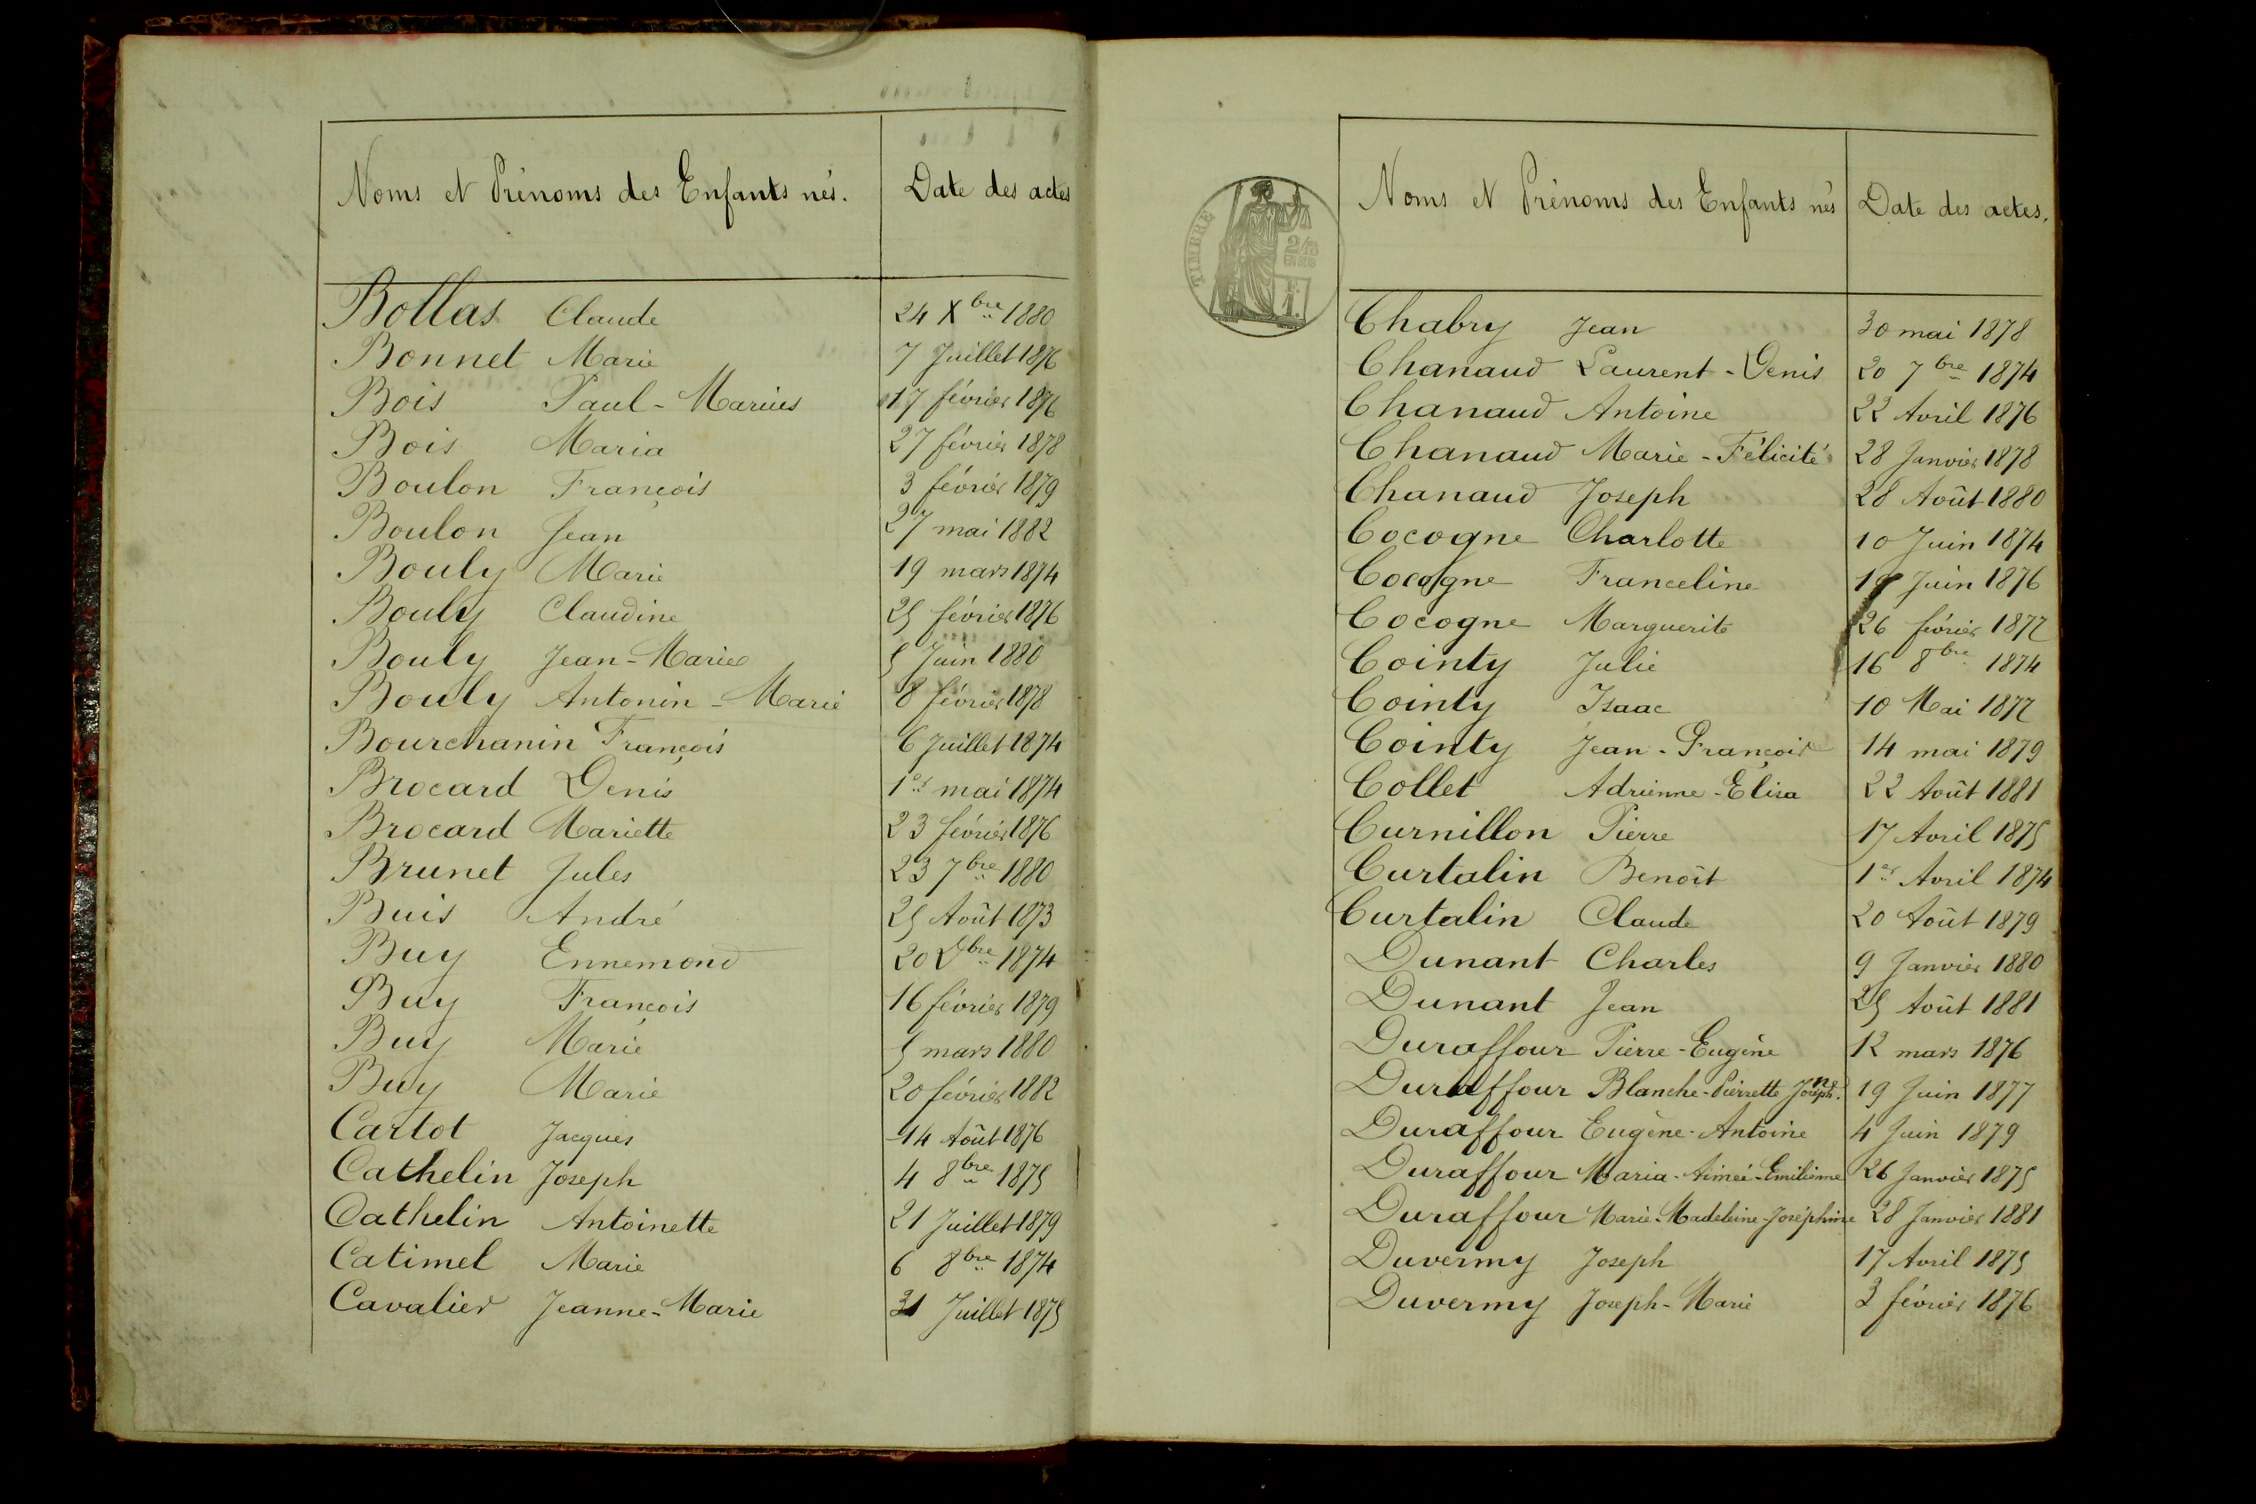 Noms et Prénoms des Enfants nés.
Date des actes
Bottas Claude 24 Xbre 1880
Bonnet Marie 7 Juillet 1876
Bois Paul-Marius 17 février 1876
Bois Maria 27 février 1878
Boulon François 3 février 1879
Boulon Jean 27 mai 1882
Bouly Marie 19 mars 1874
Bouly Claudine 25 février 1876
Bouly Jean-Marie 5 Juin 1880
Bouly Antonin-Marie 8 février 1878
Bourchanin François 6 Juillet 1874
Brocard Denis 1er mai 1874
Brocard Mariette 23 février 1876
Brunet Jules 23 7bre 1880
Buis André 25 Août 1873
Buy Ennemond 20 9bre 1874
Buy François 16 février 1879
Buy Marie 5 mars 1880
Buy Marie 20 février 1882
Cartot Jacques 14 Août 1876
Cathelin Joseph 4 8bre 1875
Cathelin Antoinette 21 Juillet 1879
Catimel Marie 6 8bre 1874
Cavalier Jeanne-Marie 31 Juillet 1875
TIMBRE
Noms et Prénoms des Enfants nés
Date des actes.
Chabry Jean 30 mai 1878
Chanaud Laurent-Denis 20 7bre 1874
Chanaud Antoine 22 Avril 1876
Chanaud Marie-Félicité 28 Janvier 1878
Chanaud Joseph 28 Août 1880
Cocogne Charlotte 10 Juin 1874
Cocogne Franceline Juin 1876
Cocogne Marguerite 26 février 1877
Cointy Julie 16 8bre 1874
Cointy Isaac 10 Mai 1877
Cointy Jean-François 14 mai 1879
Collet Adrienne-Elisa 22 Août 1881
Curnillon Pierre 17 Avril 1875
Curtalin Benoît 1er Avril 1874
Curtalin Claude 20 Août 1879
Dunant Charles 9 Janvier 1880
Dunant Jean 25 Août 1881
Duraffour Pierre-Eugène 12 mars 1876
Duraffour Blanche-Pierrette Joséph.ne 19 Juin 1877
Duraffour Eugène-Antoine 4 Juin 1879
Duraffour Maria-Aimée-Emilienne 26 Janvier 1875
Duraffour Marie-Madeleine-Joséphine 28 Janvier 1881
Duvermy Joseph 17 Avril 1875
Duvermy Joseph-Marie 3 février 1876